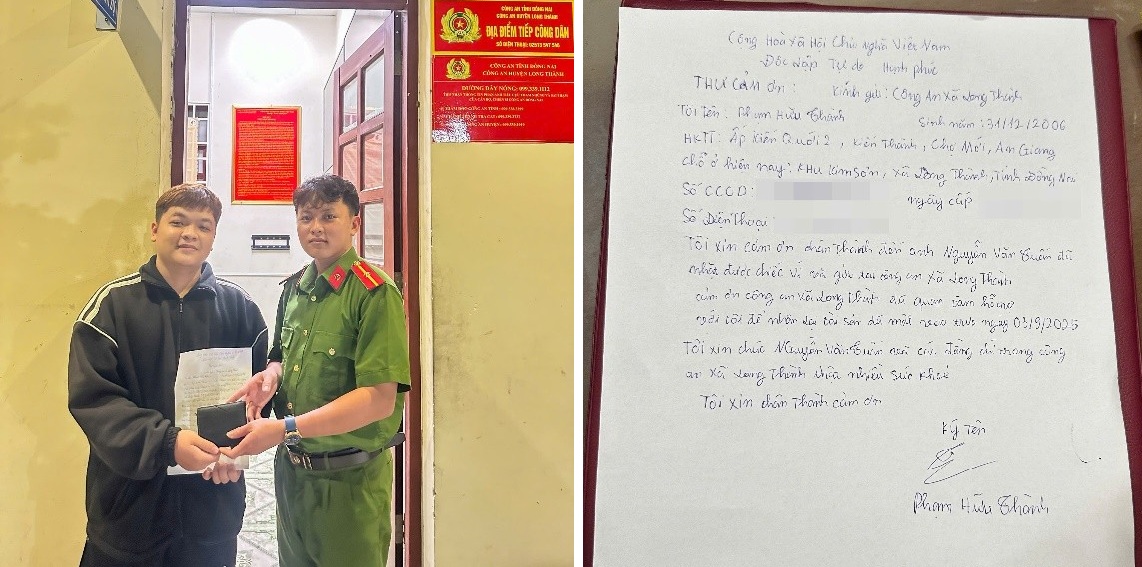 CÔNG AN TỈNH ĐỒNG NAI
CÔNG AN HUYỆN LONG THÀNH
ĐỊA ĐIỂM TIẾP CÔNG DÂN
CÔNG AN TỈNH ĐỒNG NAI
CÔNG AN HUYỆN LONG THÀNH
ĐƯỜNG DÂY NÓNG:
Cộng Hoà Xã Hội Chủ nghĩa Việt Nam
Độc Lập Tự do Hạnh phúc
THƯ CẢM ƠN: Kính gửi: Công An Xã Long Thành
Tôi Tên: Phạm Hữu Thành Sinh năm: 31/12/2006
HKTT: Ấp Kiến Quới 2, Kiến Thành, Chợ Mới, An Giang
Chỗ ở hiện nay: Khu Kim Sơn, xã Long Thành, Tỉnh Đồng Nai
Số CCCD: ngày cấp
Số Điện Thoại:
Tôi xin cảm ơn chân thành đến anh Nguyễn Văn Tuấn đã
nhặt được chiếc ví và gửi lại công an xã Long Thành
cảm ơn công an xã Long Thành đã quan tâm hỗ trợ
với tôi để nhận lại tài sản đã mất ngày 03/9/2025
Tôi xin chúc Nguyễn Văn Tuấn và các đồng chí trong công
an xã Long Thành thật nhiều sức khoẻ
Tôi xin chân thành cảm ơn
Ký Tên
Phạm Hữu Thành